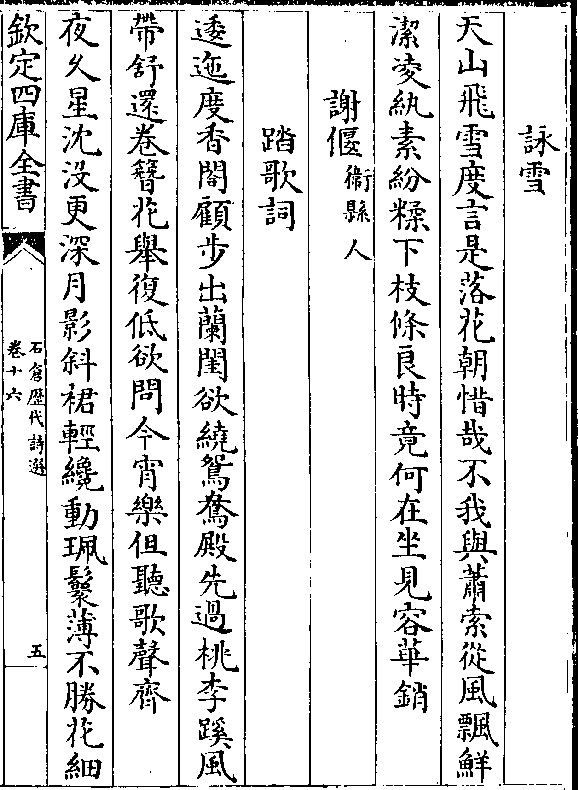 詠雪
天山飛雪度言是落花朝惜哉不我與蕭索從風飄鮮
潔凌紈素紛糅下枝條良時竟何在坐見容華銷
謝偃衞縣人
踏歌詞
逶迤度香閣顧步出蘭閨欲繞鴛鴦殿先過桃李蹊風
帶舒還卷簪花舉復低欲問今宵樂但聽歌聲齊
夜久星沈没更深月影斜裙輕纔動珮鬟薄不勝花細
欽定四庫全書
石倉歴代詩選
卷十六
五